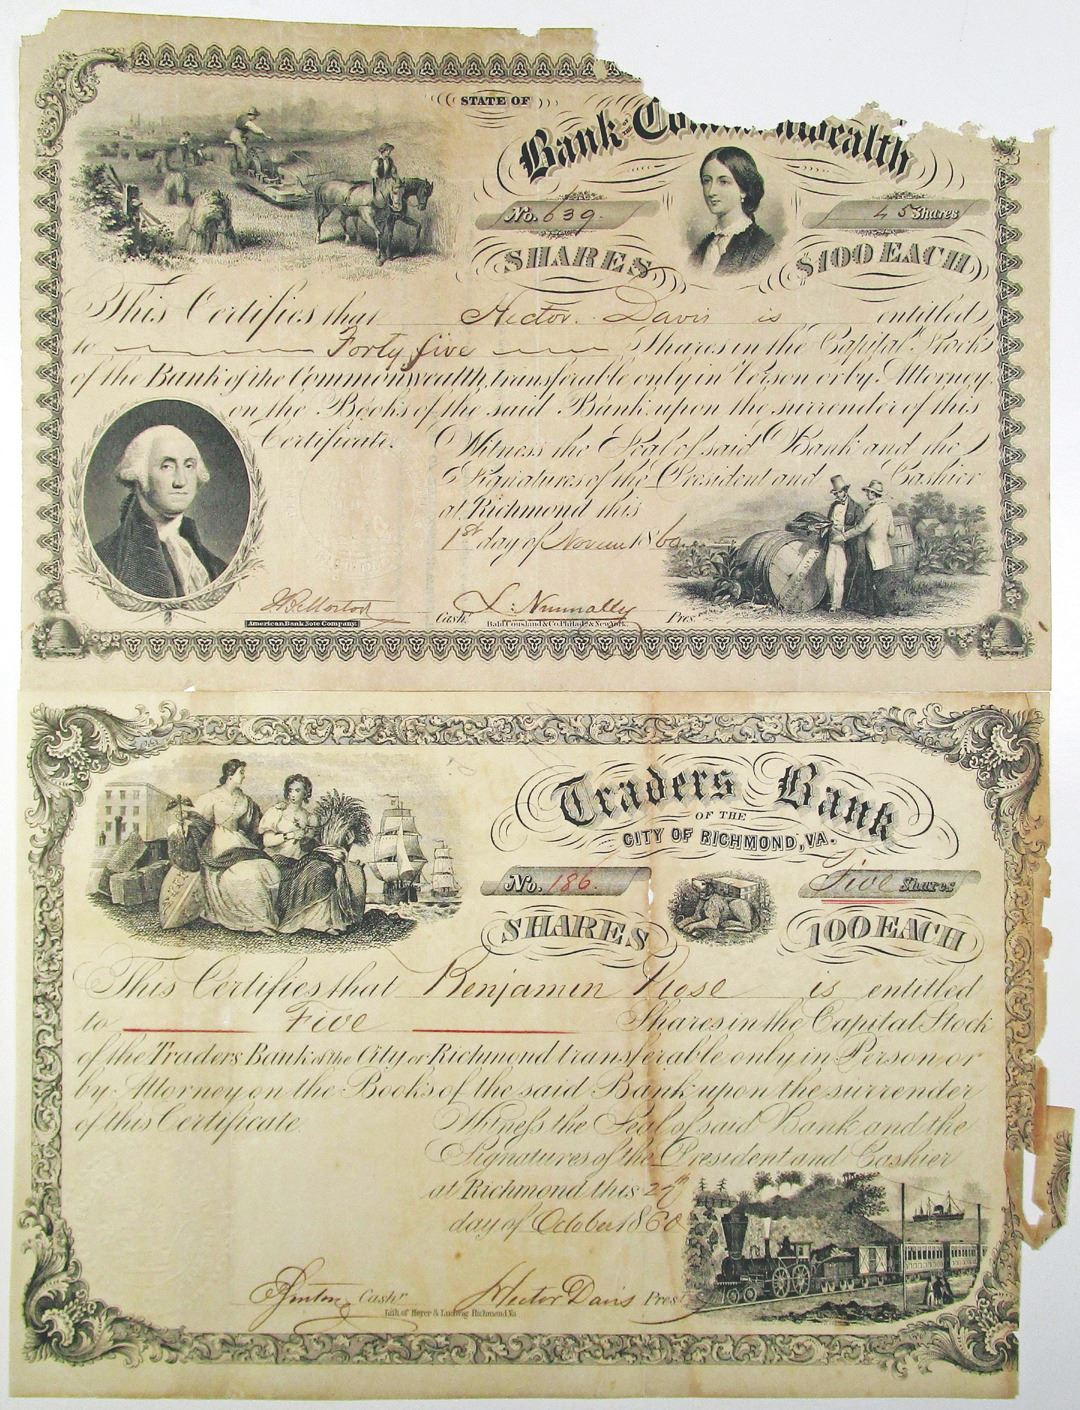 STATE OF
Bank OF THE Commonwealth
No. 639.
45 Shares
SHARES
$100 EACH
This Certifies that Hector Davis is entitled
to Forty five Shares in the Capital Stock
of the Bank of the Commonwealth, transferable only in Person or by Attorney
on the Books of the said Bank upon the surrender of this
Certificate.
Witness the Seal of said Bank and the
Signatures of the President and Cashier
at Richmond this
1st day of Novem 1860
Cash.
L. Nunnally
Pres.
American Bank Note Company.
Bald, Cousland & Co. Philada & New York.
Traders Bank
OF THE
CITY OF RICHMOND, VA.
No. 186.
Five Shares
SHARES
100 EACH
This Certifies that Benjamin Rose is entitled
to Five Shares in the Capital Stock
of the Traders Bank of the City of Richmond transferable only in Person or
by Attorney on the Books of the said Bank upon the surrender
of this Certificate.
Witness the Seal of said Bank and the
Signatures of the President and Cashier
at Richmond this 27th
day of October 1860
Cashr
Hector Davis Prest
Lith. of Hoyer & Ludwig Richmond Va.